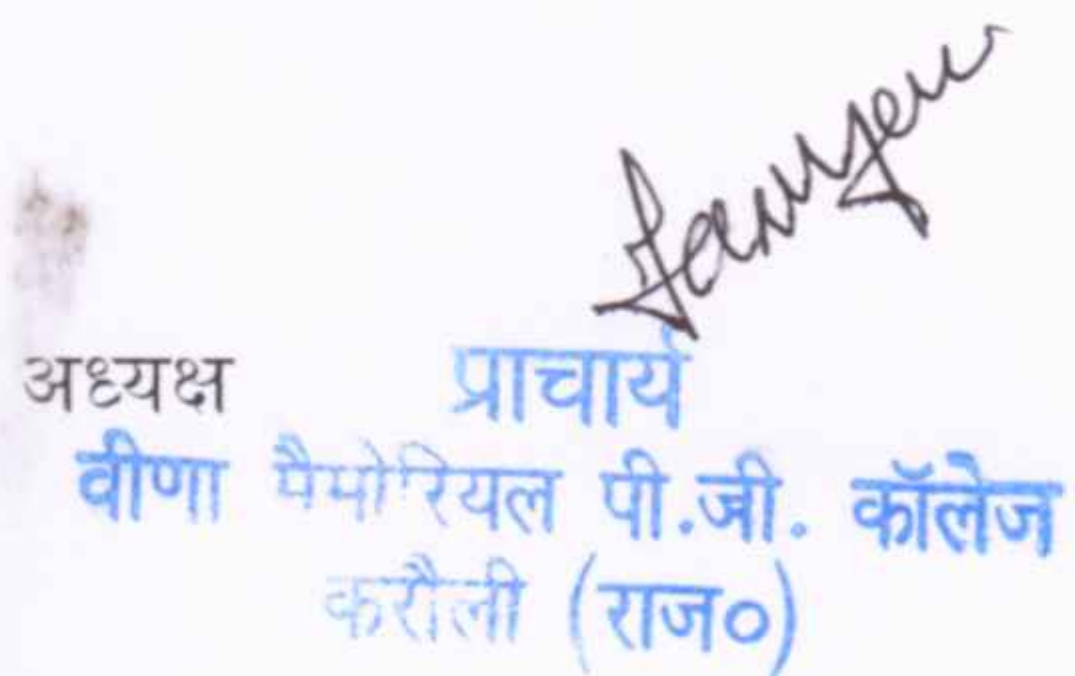 अध्यक्ष प्राचार्य
वीणा मैमोरियल पी.जी. कॉलेज
करौली (राज०)